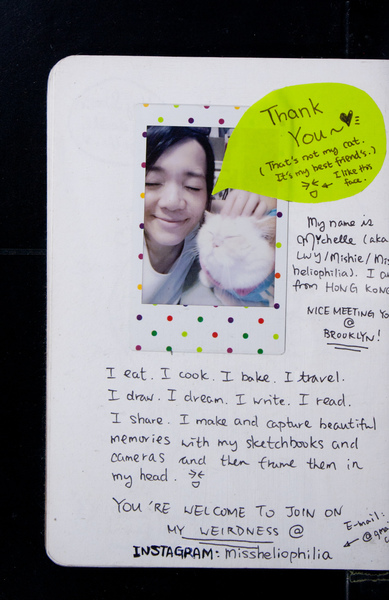 Thank
You~
(That's not my cat.
It's my best friend's.)
I like this
face.
My name is
Mychelle (aka
LWY/Mishie/Mis
heliophilia). I a
from HONG KONG
NICE MEETING YO
@
BROOKLYN!
I eat. I cook. I bake. I travel.
I draw. I dream. I write. I read.
I share. I make and capture beautiful
memories with my sketchbooks and
cameras and then frame them in
my head.
YOU'RE WELCOME TO JOIN ON
MY WEIRDNESS @
INSTAGRAM: Missheliophilia
E-mail:
@gma